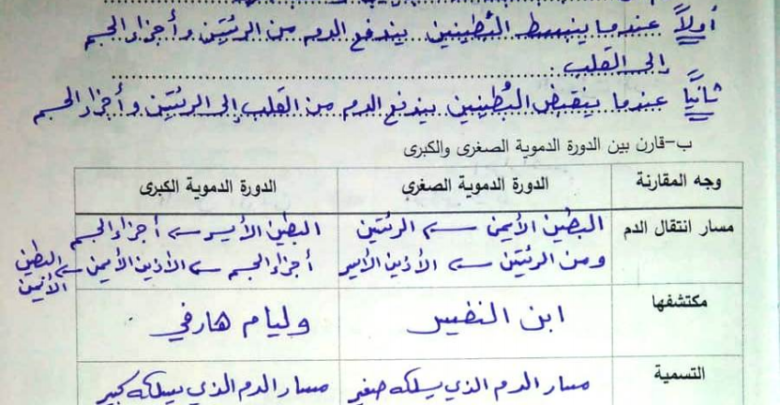 أولاً عندما ينبسط البُطينين يندفع الدم من الرئتين وأجزاء الجسم
إلى القلب.
ثانياً عندما ينقبض البُطينين يندفع الدم من القلب إلى الرئتين وأجزاء الجسم
ب-قارن بين الدورة الدموية الصغرى والكبرى
وجه المقارنة الدورة الدموية الصغرى الدورة الدموية الكبرى
مسار انتقال الدم
البطين الأيمن ← الرئتين
ومن الرئتين ← الأذين الأيسر
البطين الأيسر ← أجزاء الجسم
أجزاء الجسم ← الأذين الأيمن ← البطين
الأيمن
مكتشفها ابن النفيس وليام هارفي
التسمية مسار الدم الذي يسلكه صغير مسار الدم الذي يسلكه كبير